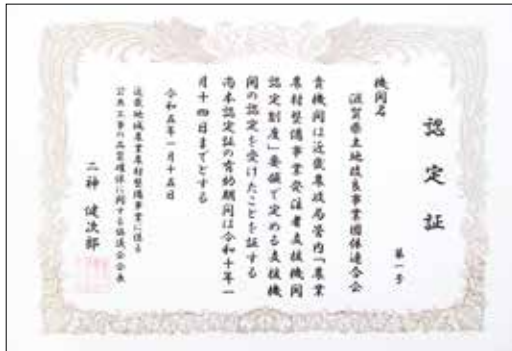 認定証
第一号
機関名
滋賀県土地改良事業団体連合会
貴機関は近畿農政局管内「農業
農村整備事業発注者支援機関
認定制度」要領で定める支援機
関の認定を受けたことを証する
尚本認定証の有効期間は令和十年一
月十四日までとする
令和五年一月十五日
近畿地域農業農村整備事業に係る
公共工事の品質確保に関する協議会会長
二神 健次郎